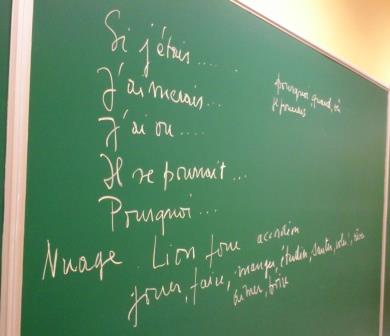 Si j'étais.......
J'aimerais...
J'ai vu....
Il se pourrait...
Pourquoi...
pourquoi, quand, où
Nuage Lion four accordéon
jouer, faire, manger, étudier, sauter,
aimer, boire